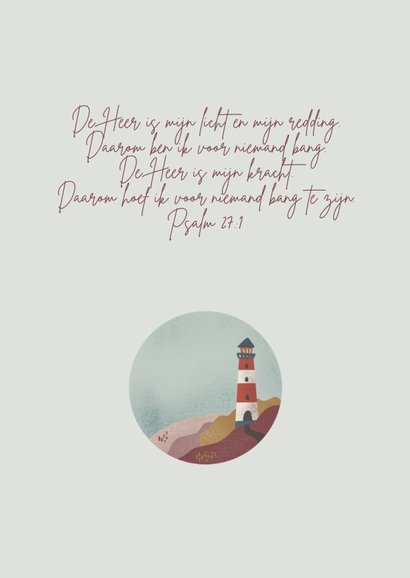 De Heer is mijn licht en mijn redding.
Daarom ben ik voor niemand bang.
De Heer is mijn kracht.
Daarom hoef ik voor niemand bang te zijn.
Psalm 27:1